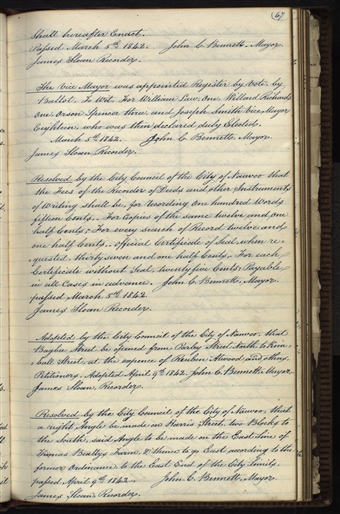 67
Shall hereafter Enact.
Passed March 5th 1842. John C. Bennett, Mayor.
James Sloan Recorder.
The Vice Mayor was appointed Register by Vote, by
Ballot, To Wit, For William Law, One, Willard Richards
One, Orson Spencer three, and Joseph Smith Vice Mayor
Eighteen, who was then declared duly Elected.
March 5th 1842. John C. Bennett, Mayor.
James Sloan Recorder.
Resolved by the City Council of the City of Nauvoo that
the Fees of the Recorder of Deeds and other Instruments
of Writing shall be, for recording One hundred Words
fifteen Cents, For Copies of the same twelve and one
half Cents, For every search of Record twelve and
one half Cents, official Certificate of Seal, when re-
quested, thirty seven and one half Cents, For each
Certificate without Seal, twenty five Cents, Payable
in all Cases in advance. John C. Bennett, Mayor.
passed March 5th 1842.
James Sloan, Recorder.
Adopted by the City Council of the City of Nauvoo, that
Street be opened from Parley Street North to Kim-
ball Street, at the expence of Reuben Atwood and others
Petitioners. Adopted April 9th 1842. John C. Bennett, Mayor
James Sloan, Recorder.
Resolved by the City Council of the City of Nauvoo, that
a right Angle be made on Street, two Blocks to
the South, said Angle to be made on the East Line of
Farm, & thence to go East according to the
former Ordinance to the East End of the City Limits.
passed April 9th 1842. John C. Bennett, Mayor.
James Sloan, Recorder.